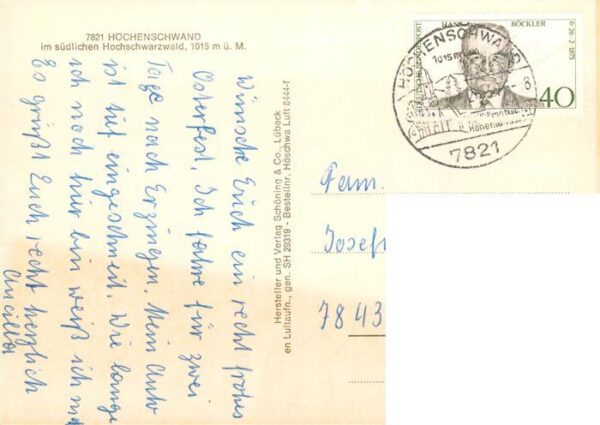 7821 HÖCHENSCHWAND
im südlichen Hochschwarzwald, 1015 m ü. M.
Wünsche Euch ein recht frohes
Osterfest. Ich fahre für zwei
Tage nach Erzingen. Mein Auto
ist tief eingeschneit. Wie lange
ich noch hier bin weiß ich
Es grüßt Euch recht herzlich
Hersteller und Verlag Schöning & Co., Lübeck
en Luftaufn., gen. SH 29319 - Bestellnr. Höschwa Luft 8444-f
HANS BÖCKLER
DEUTSCHE BUNDESPOST
26. 2. 1875
40
HÖCHENSCHWAND
1015 m
7821
Fam.
Josef
7843